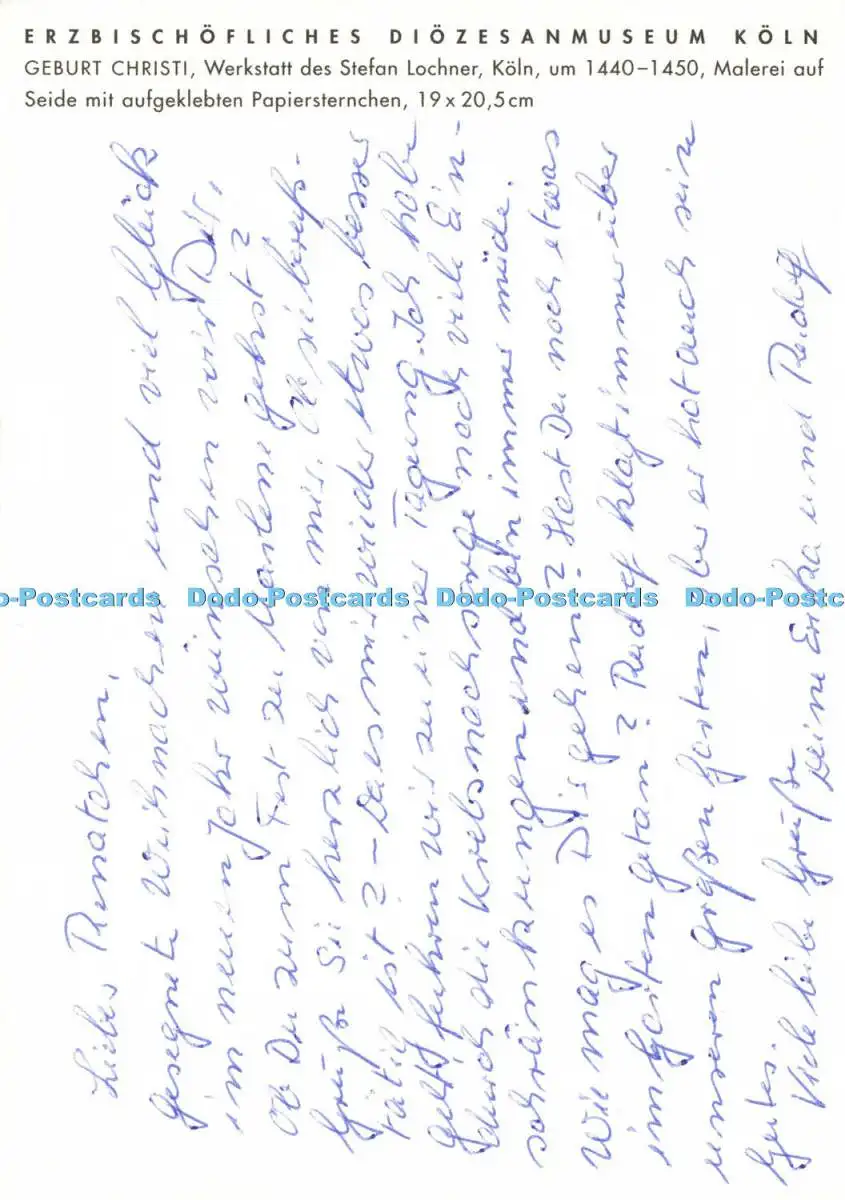 ERZBISCHÖFLICHES DIÖZESANMUSEUM KÖLN
GEBURT CHRISTI, Werkstatt des Stefan Lochner, Köln, um 1440–1450, Malerei auf
Seide mit aufgeklebten Papiersternchen, 19 x 20,5 cm
Liebes Renatchen,
gesegnete Weihnachten und viel Glück
im neuen Jahr wünschen wir Dir,
Ob Du zum Fest zu gehst?
Grüße Sie herzlich von mir. Ob sie berufs-
tätig ist? – Da es mir wieder etwas besser
geht, fuhren wir zu einer Tagung. Ich habe
durch die Krebsnachsorge noch viele Ein-
schränkungen und bin immer müde.
Wie mag es Dir gehen? Hast Du noch etwas
im Garten getan? Rudolf klagt immer über
unseren großen Garten, aber er hat auch sein
Gutes.
Viele liebe Grüße
Deine Erika und Rudolf
Dodo-Postcards Dodo-Postcards Dodo-Postcards Dodo-Postcards